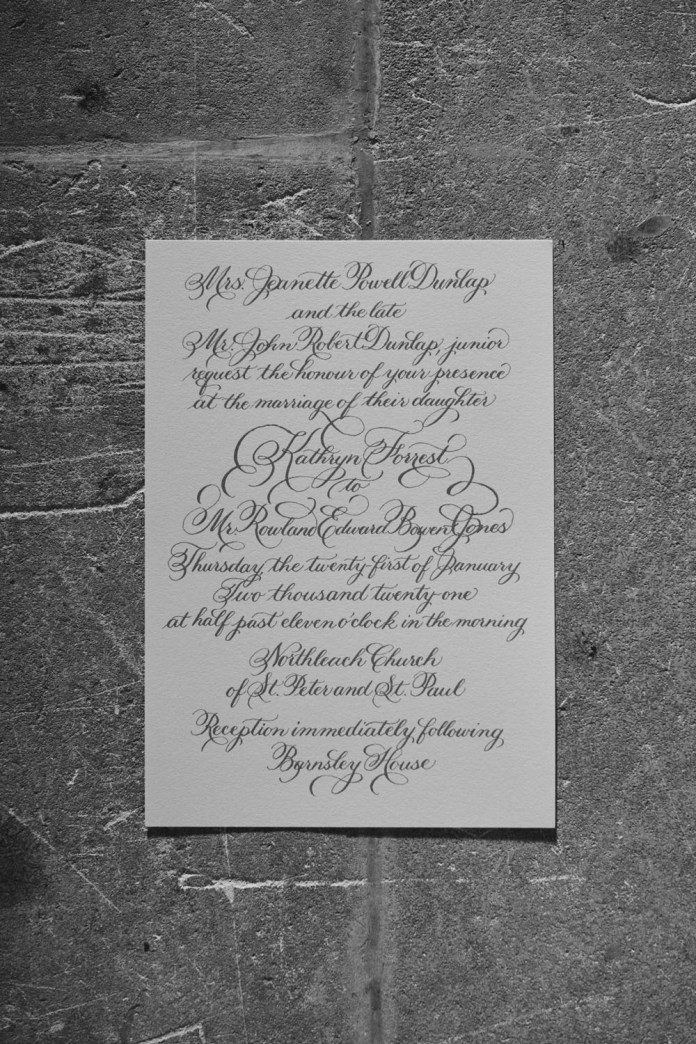 Mrs. Jeanette Powell Dunlap
and the late
Mr. John Robert Dunlap, junior
request the honour of your presence
at the marriage of their daughter
Kathryn Forrest
to
Mr. Rowland Edward Bowen Jones
Thursday the twenty-first of January
Two thousand twenty-one
at half past eleven o'clock in the morning
Northleach Church
of St. Peter and St. Paul
Reception immediately following
Barnsley House